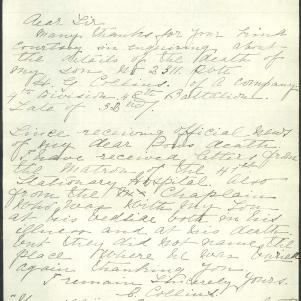 Dear Sir
Many thanks for your kind
courtesy in enquiring about
the details of the death of
my son No 2311. Pte
H. G. Collins. A company
4th Division 4 Battalion
Late of 32nd
Since receiving official news
of my dear Boys death
I have received letters from
the Matron of the 41st
Stationary Hospital. Also
from the Chaplain
who was with my Son
at his bedside both in his
illness and at his death
but they did not name the
place where he was buried
again thanking you
I remain Sincerely Yours.
E. Collins